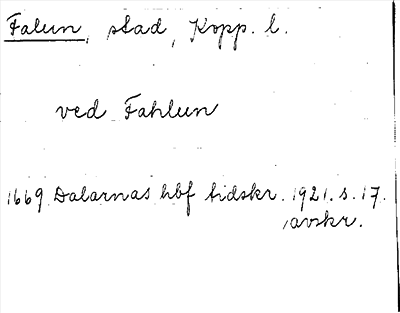 Falun, stad, Kopp. l.
ved Fahlun
1669 Dalarnas hbf tidskr. 1921. s. 17.
avskr.